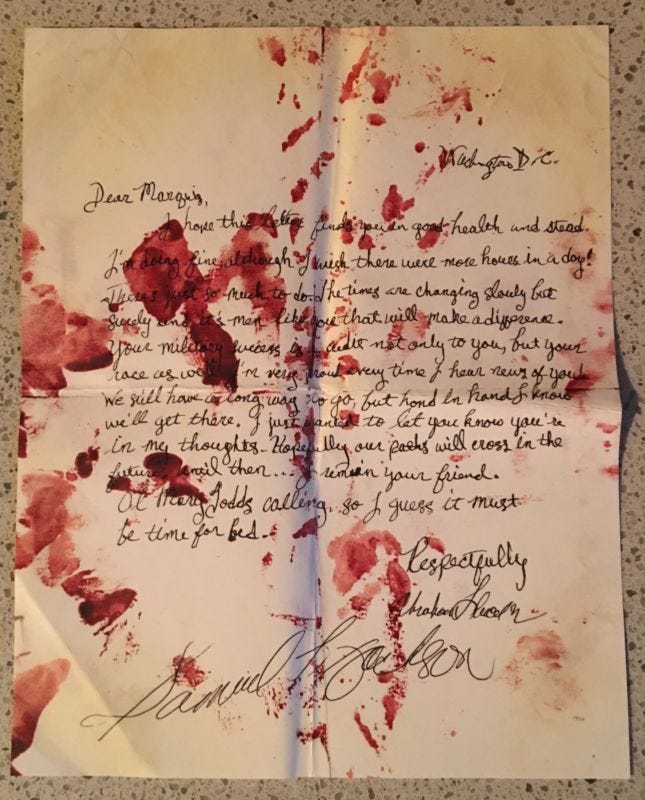 Washington D.C.
Dear Marquis,
I hope this letter finds you in good health and stead.
I'm doing fine although I wish there were more hours in a day!
There's just so much to do. The times are changing slowly but
surely and it's men like you that will make a difference.
Your military success is a credit not only to you, but your
race as well. I'm very proud every time I hear news of you!
We still have a long way to go, but hand in hand I know
we'll get there. I just wanted to let you know you're
in my thoughts. Hopefully our paths will cross in the
future until then... I remain your friend.
Ol Mary Todds calling, so I guess it must
be time for bed.
Respectfully
Abraham Lincoln
Samuel L Jackson